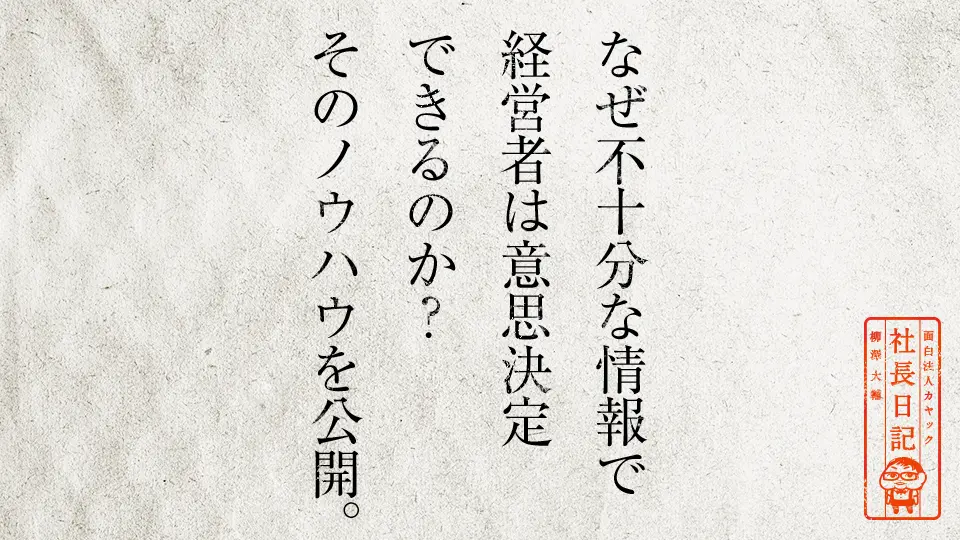 なぜ不十分な情報で
経営者は意思決定
できるのか?
そのノウハウを公開。
面白法人カヤック
社長日記
柳澤大輔